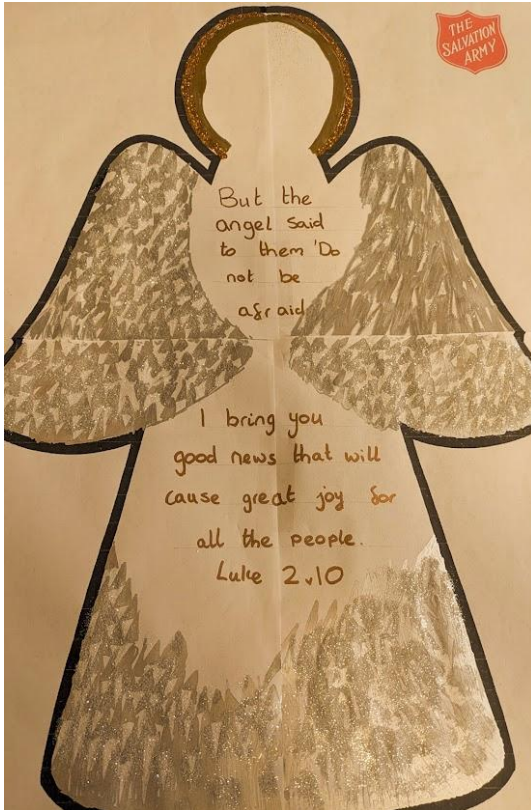 THE
SALVATION
ARMY
But the
angel said
to them 'Do
not be
afraid
I bring you
good news that will
cause great joy for
all the people.
Luke 2v10